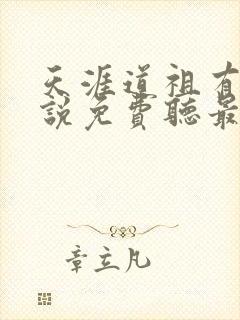 天涯道祖有
說免費聽最
章立凡